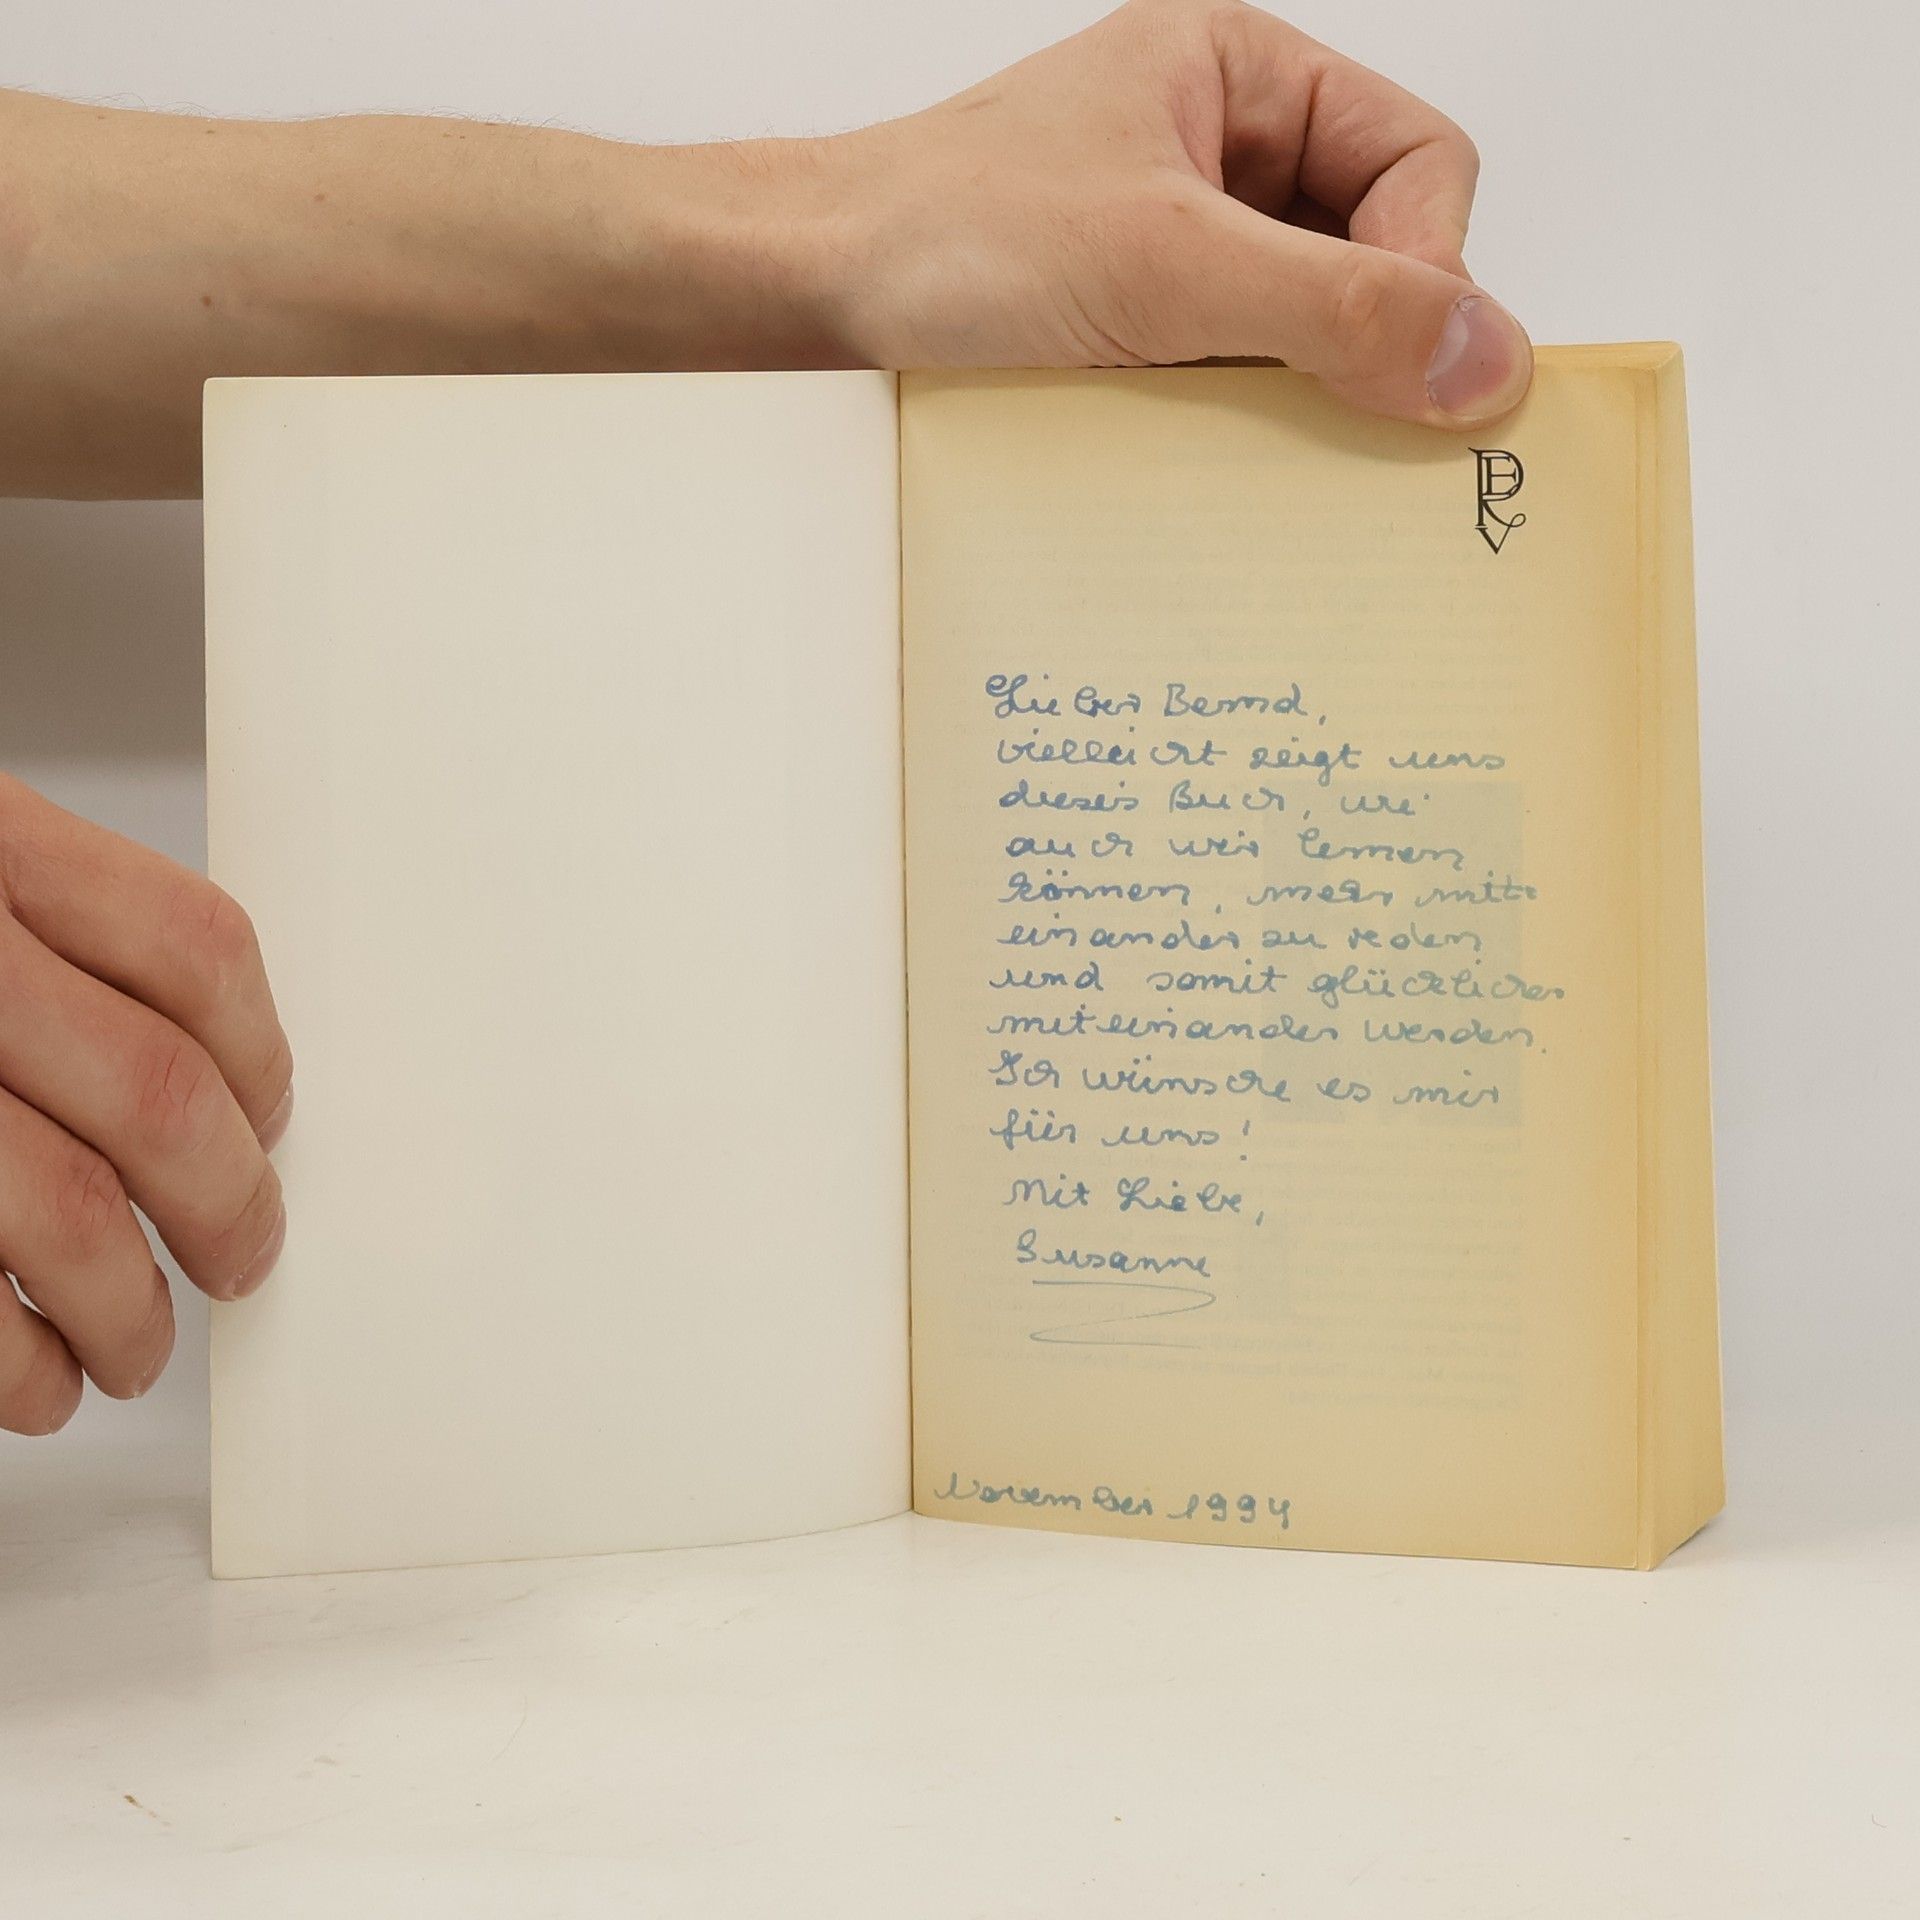 PERV
Lieber Bernd,
vielleicht zeigt uns
dieses Buch, wie
auch wir lernen
können, mehr mit-
einander zu reden
und somit glücklicher
miteinander werden.
Ich wünsche es mir
für uns!
Mit Liebe,
Susanne
November 1994